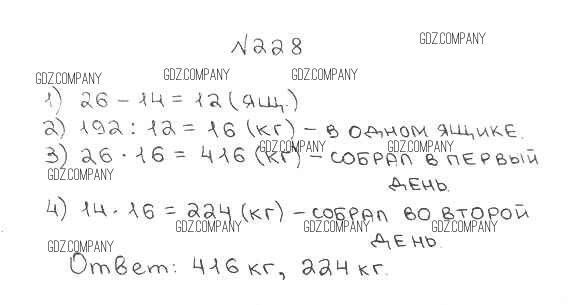 №228
GDZ.COMPANY
GDZ.COMPANY GDZ.COMPANY GDZ.COMPANY
1) 26 - 14 = 12 (ящ.)
2) 192 : 12 = 16 (кг) - в одном ящике.
GDZ.COMPANY GDZ.COMPANY
3) 26 · 16 = 416 (кг) - собрал в первый
GDZ.COMPANY
день.
4) 14 · 16 = 224 (кг) - собрал во второй
GDZ.COMPANY GDZ.COMPANY GDZ.COMPANY
день.
GDZ.COMPANY
Ответ: 416 кг, 224 кг.